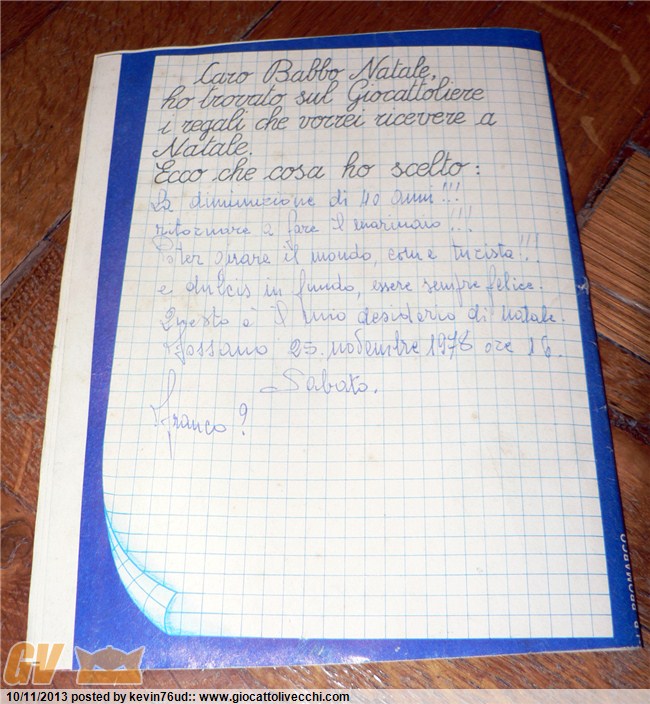 Caro Babbo Natale,
ho trovato sul Giocattoliere
i regali che vorrei ricevere a
Natale.
Ecco che cosa ho scelto:
La diminuzione di 40 anni!!!
ritornare a fare il marinaio!!!
Poter girare il mondo, come turista!!!
e dulcis in fundo, essere sempre felice.
Questo è il mio desiderio di Natale.
Fossano 25. novembre 1978 ore 16.
Sabato.
Franco?
GV
10/11/2013 posted by kevin76ud:: www.giocattolivecchi.com